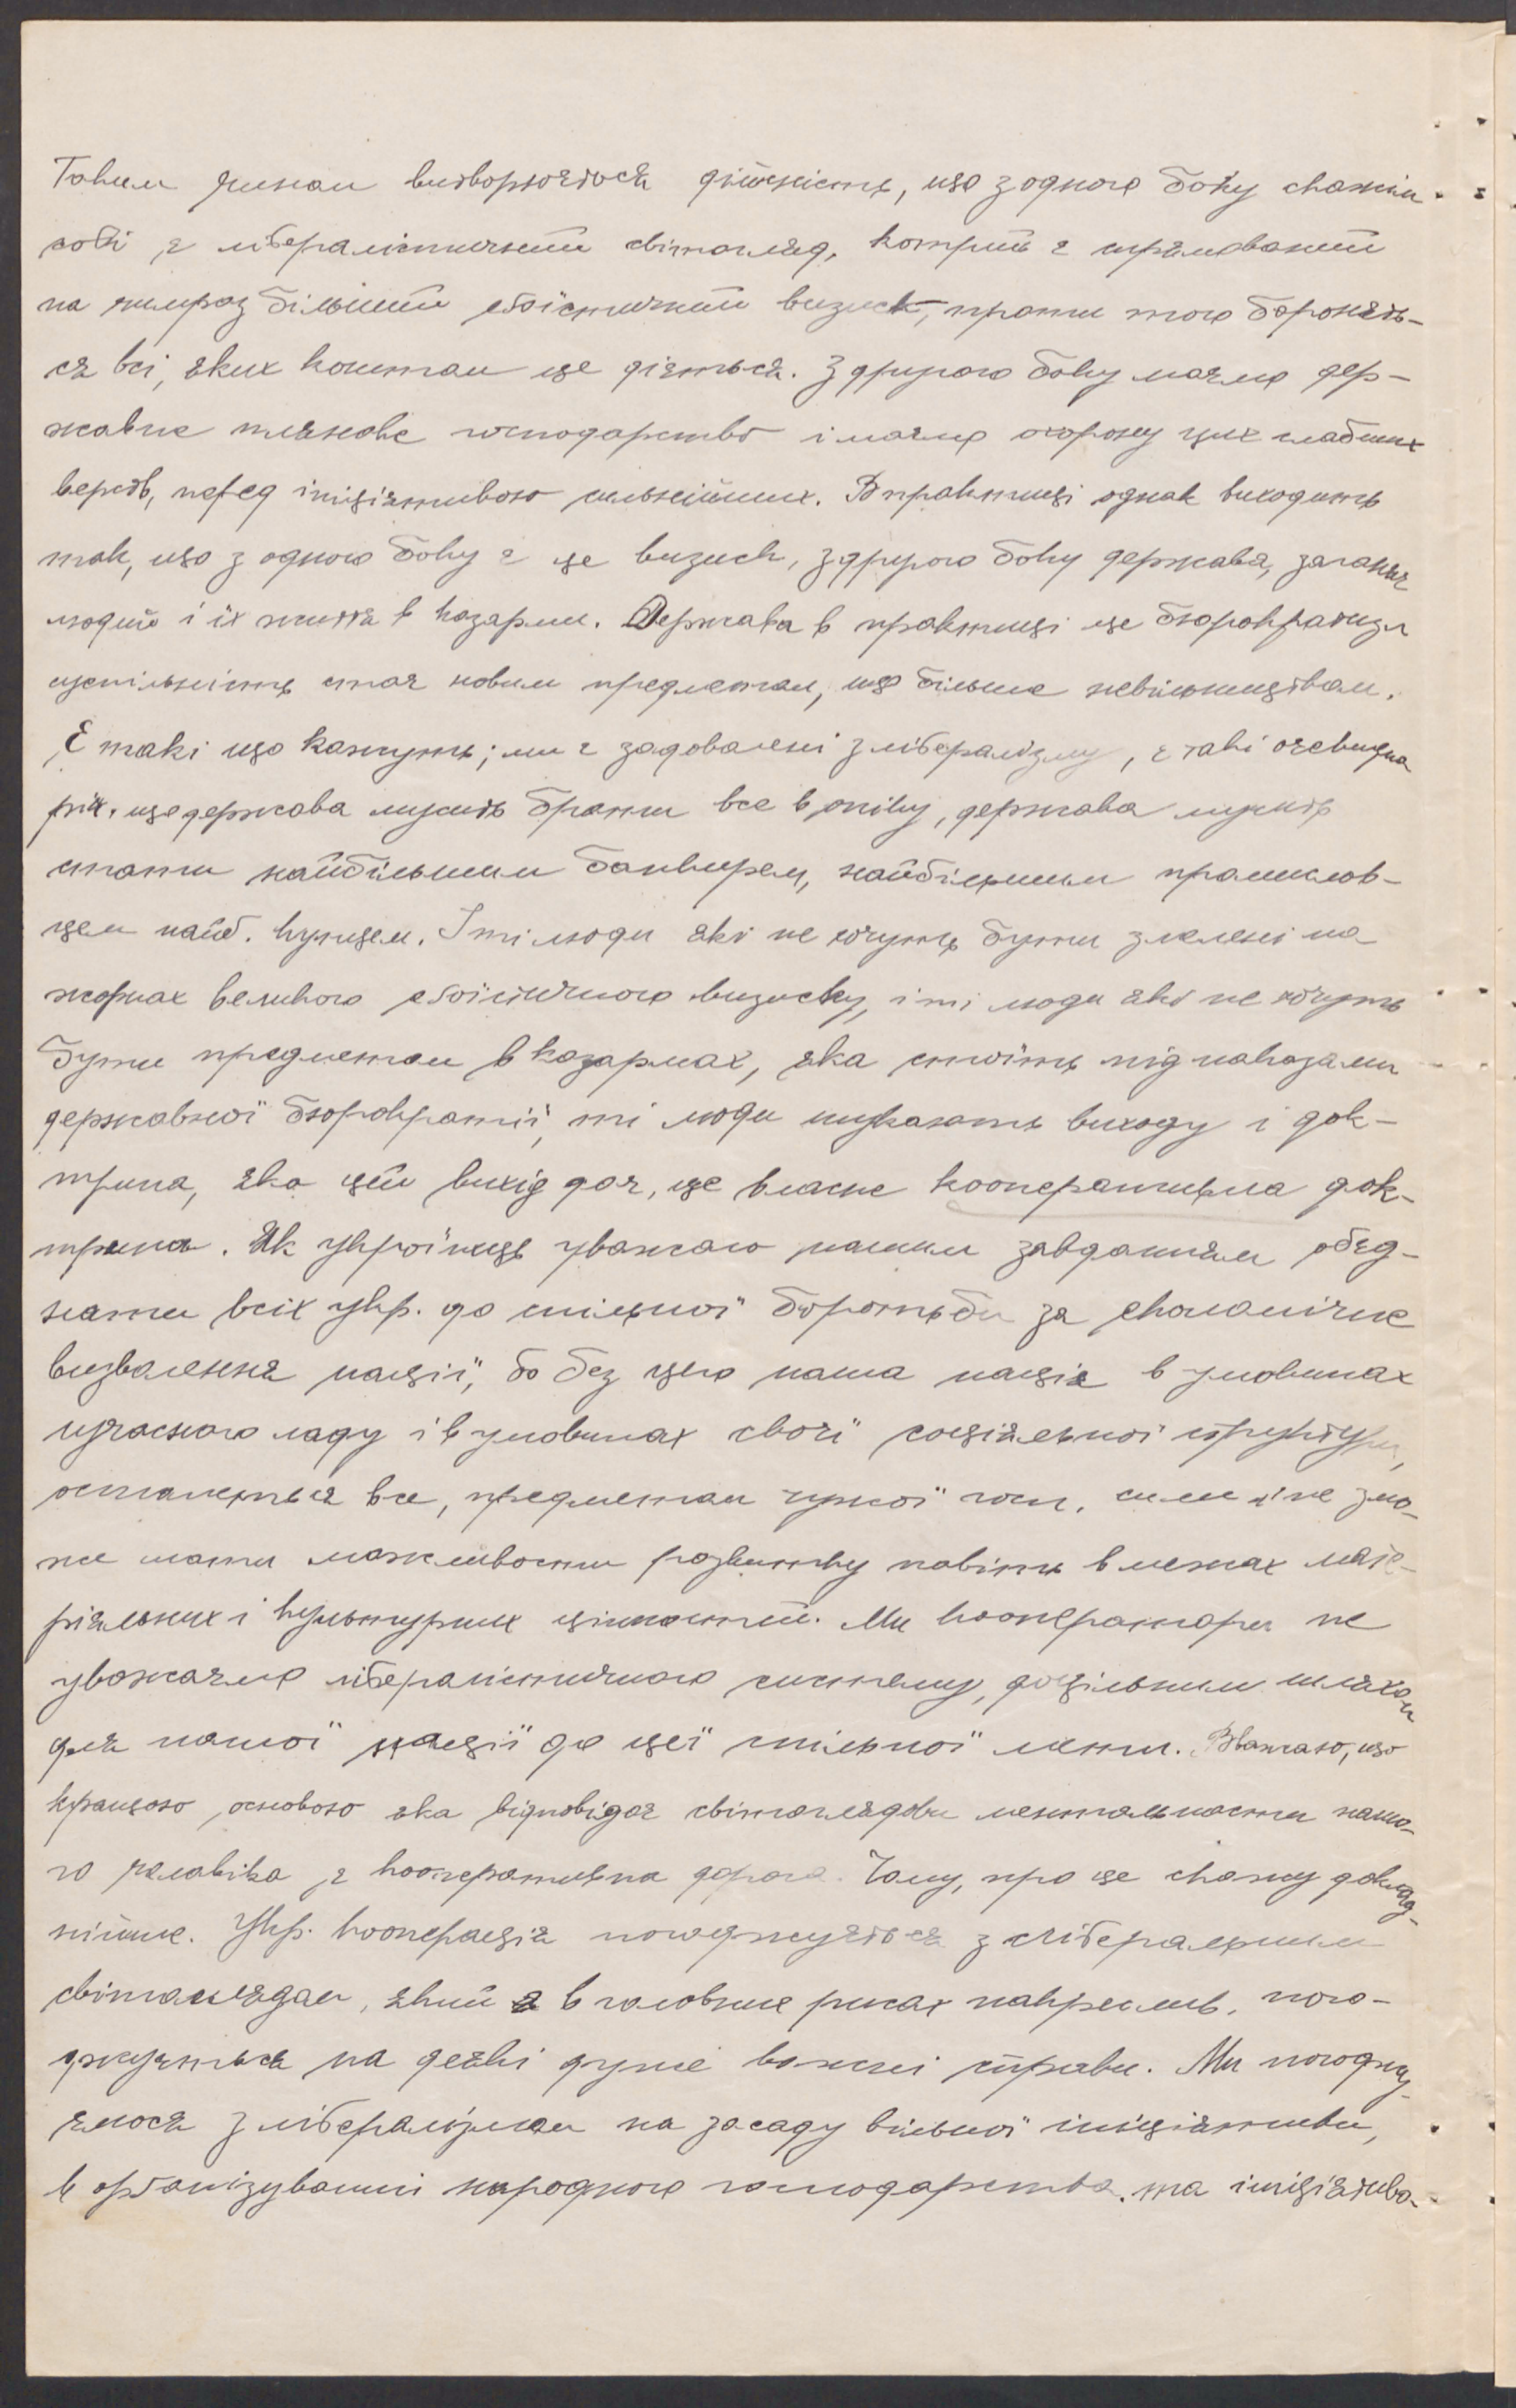 Таким чином витворюється дійсність, що з одного боку скажім
собі є лібералістичний світогляд, котрий є спрямований
на чимраз більший егоїстичний визиск, проти того боронять-
ся всі, яких коштом це діється. З другого боку маємо дер-
жавне плянове господарство і маємо охорону цих слабших
верств, перед ініціятивою сильнійших. В практиці однак виходить
так, що з одного боку є це визиск, з другого боку держава, заганяє
людий і їх життя в казарми. Держава в практиці це бюрократизм
суспільність стає новим предметом, ще більше невільництвом.
Є такі що кажуть; ми є задоволені з лібералізму, є такі очевидна
річ, що держава мусить брати все в опіку, держава мусить
стати найбільшим банкирем, найбільшим промислов-
цем найб. купцем. І ті люди які не хочуть бути змелені на
жорнах великого егоїстичного визиску, і ті люди які не хочуть
бути предметом в казармах, яка стоїть під наказами
державної бюрократії, ті люди шукають виходу і док-
трина, яка цей вихід дає, це власне кооперативна док-
трина. Як українець уважаю нашим завданням обєд-
нати всіх укр. до спільної боротьби за економічне
визволення нації, бо без цего наша нація в умовинах
сучасного ладу і в умовинах своєї соціяльної структури,
останеться все, предметом чужої госп. сили і не змо-
же мати можливости розвитку навіть в межах мате-
ріяльних і культурних цінностей. Ми кооператори не
уважаємо лібералістичного систему, доцільним шляхом
для нашої нації до цеї спільної мети. Вважаю, що
кращою основою яка відповідає світоглядови ментальности нашо-
го чоловіка є кооперативна дорога. Чому, про це скажу доклад-
нійше. Укр. кооперація погоджується з ліберальним
світоглядом, який я в головних рисах накреслив, пого-
джується на деякі дуже важні справи. Ми погоджу-
ємося з лібералізмом на засаду вільної ініціятиви,
в організуванні народного господарства, та ініціятива